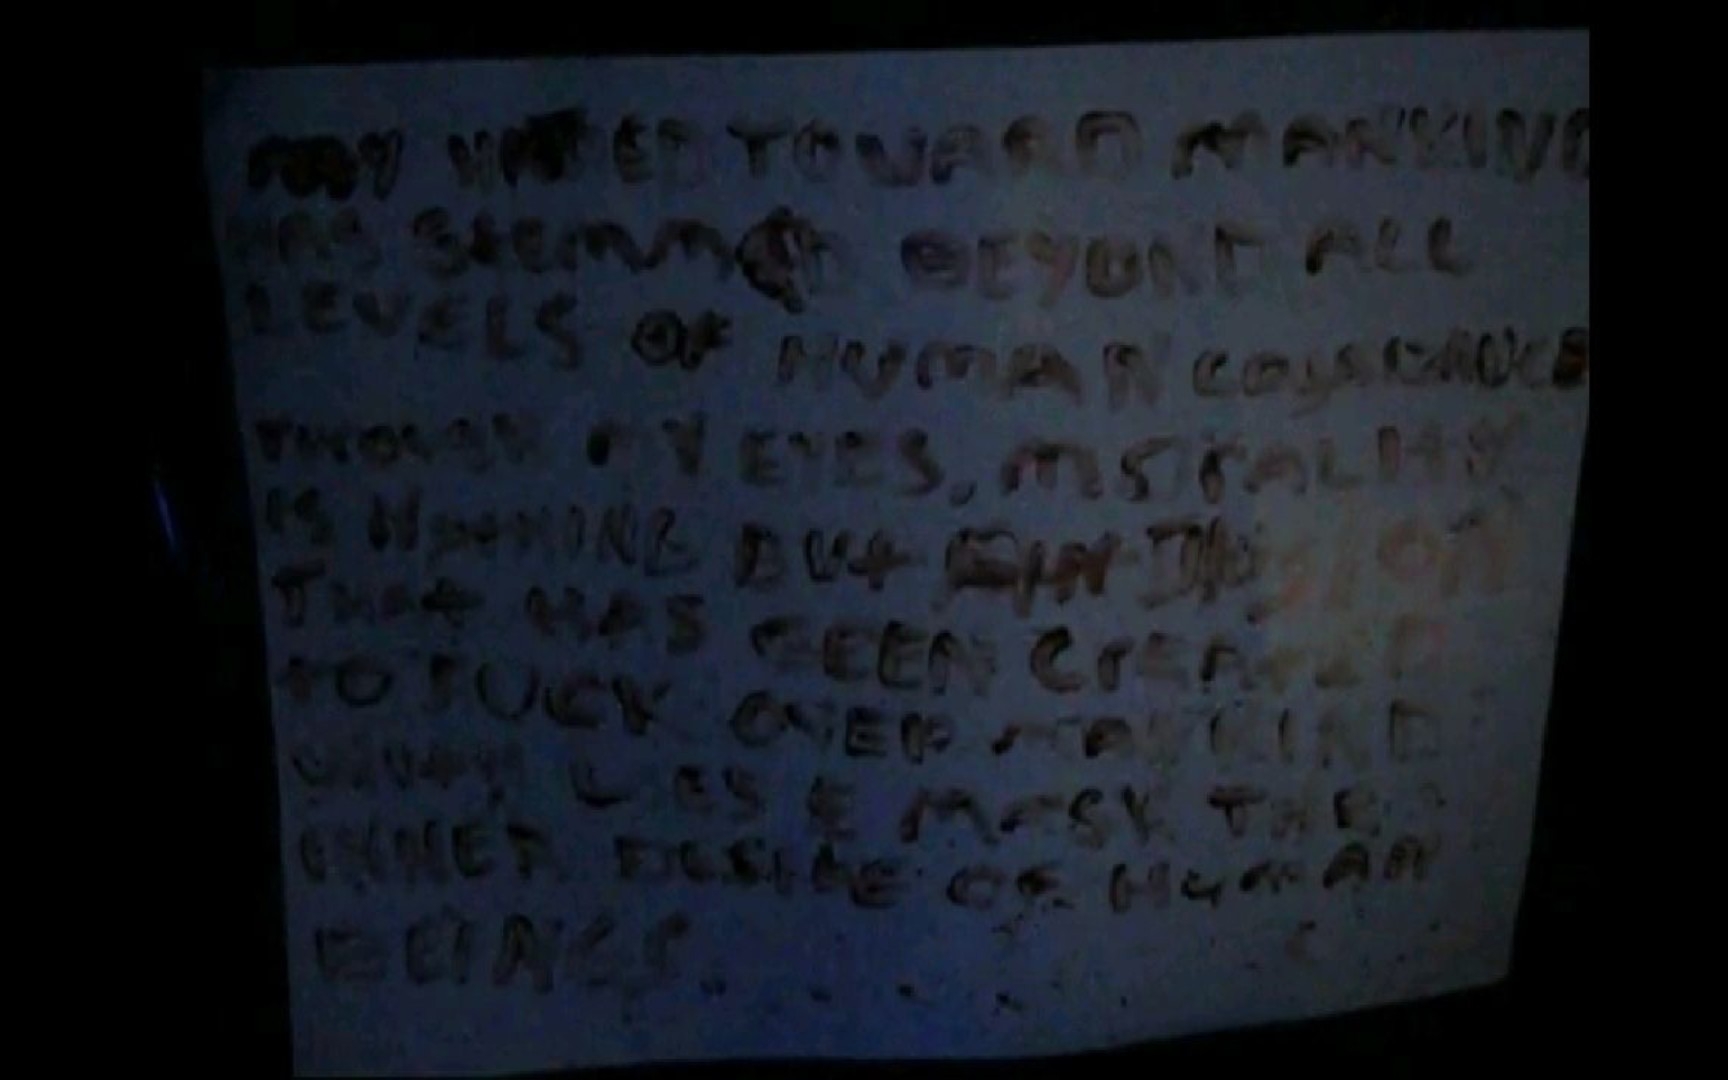 MY HATED TOWARD MANKIND
HAS Stemmed BEYOND ALL
LEVELS OF HUMAN
THOUGH MY EYES, MORTALITY
IS NOTHING BUT AN
THAT HAS BEEN CREATED
TO FUCK OVER MANKIND
MASK THE
INNER OF HUMAN
BEINGS.....